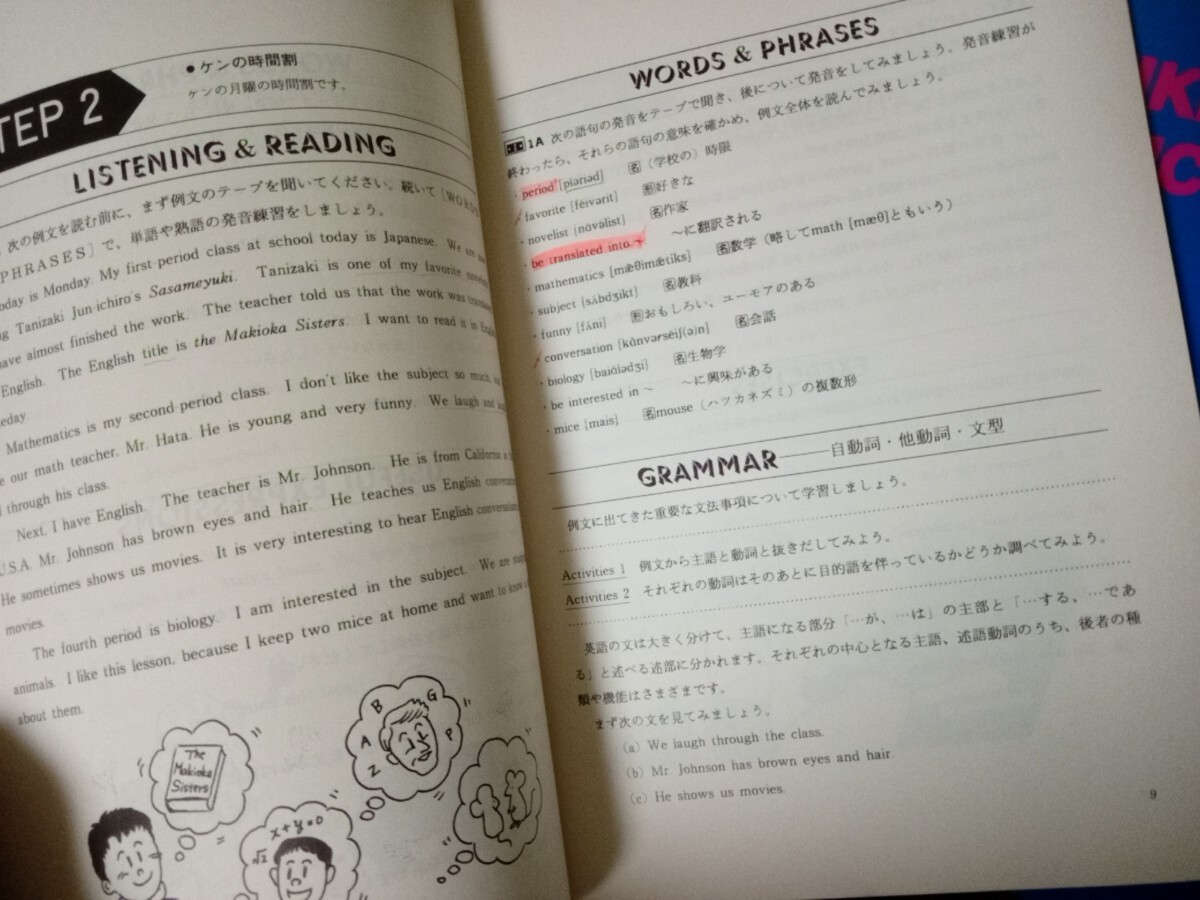 TEP 2
●ケンの時間割
ケンの月曜の時間割です。
LISTENING & READING
次の例文を読む前に、まず例文のテープを聞いてください。続いて[WORDS
PHRASES]で、単語や熟語の発音練習をしましょう。
oday is Monday. My first-period class at school today is Japanese. We are
g Tanizaki Jun-ichiro's Sasameyuki. Tanizaki is one of my favorite
ave almost finished the work. The teacher told us that the work was
English. The English title is the Makioka Sisters. I want to read it in
eday.
Mathematics is my second-period class. I don't like the subject so much,
e our math teacher, Mr. Hata. He is young and very funny. We laugh and
l through his class.
Next, I have English. The teacher is Mr. Johnson. He is from California
U.S.A. Mr. Johnson has brown eyes and hair. He teaches us English
He sometimes shows us movies. It is very interesting to hear English
movies.
The fourth period is biology. I am interested in the subject. We are
animals. I like this lesson, because I keep two mice at home and want to
about them.
The
Makioka
Sisters
x+y=0
√2
A
B
G
P
Z
WORDS & PHRASES
1A 次の語句の発音をテープで聞き、後について発音をしてみましょう。発音練習が
終わったら、それらの語句の意味を確かめ、例文全体を読んでみましょう。
・period [píəriəd] 名（学校の）時限
・favorite [féivərit] 形好きな
・novelist [návəlist] 名作家
・be translated into ～ ～に翻訳される
・mathematics [mæθimǽtiks] 名数学（略してmath [mæθ]ともいう）
・subject [sʌ́bdʒikt] 名教科
・funny [fʌ́ni] 形おもしろい、ユーモアのある
・conversation [kànvərséiʃ(ə)n] 名会話
・biology [baiálədʒi] 名生物学
・be interested in ～ ～に興味がある
・mice [mais] 名mouse（ハツカネズミ）の複数形
GRAMMAR――自動詞・他動詞・文型
例文に出てきた重要な文法事項について学習しましょう。
Activities 1 例文から主語と動詞と抜きだしてみよう。
Activities 2 それぞれの動詞はそのあとに目的語を伴っているかどうか調べてみよう。
英語の文は大きく分けて、主語になる部分「…が、…は」の主部と「…する、…であ
る」と述べる述部に分かれます。それぞれの中心となる主語、述語動詞のうち、後者の種
類や機能はさまざまです。
まず次の文を見てみましょう。
(a) We laugh through the class.
(b) Mr. Johnson has brown eyes and hair.
(c) He shows us movies.
9